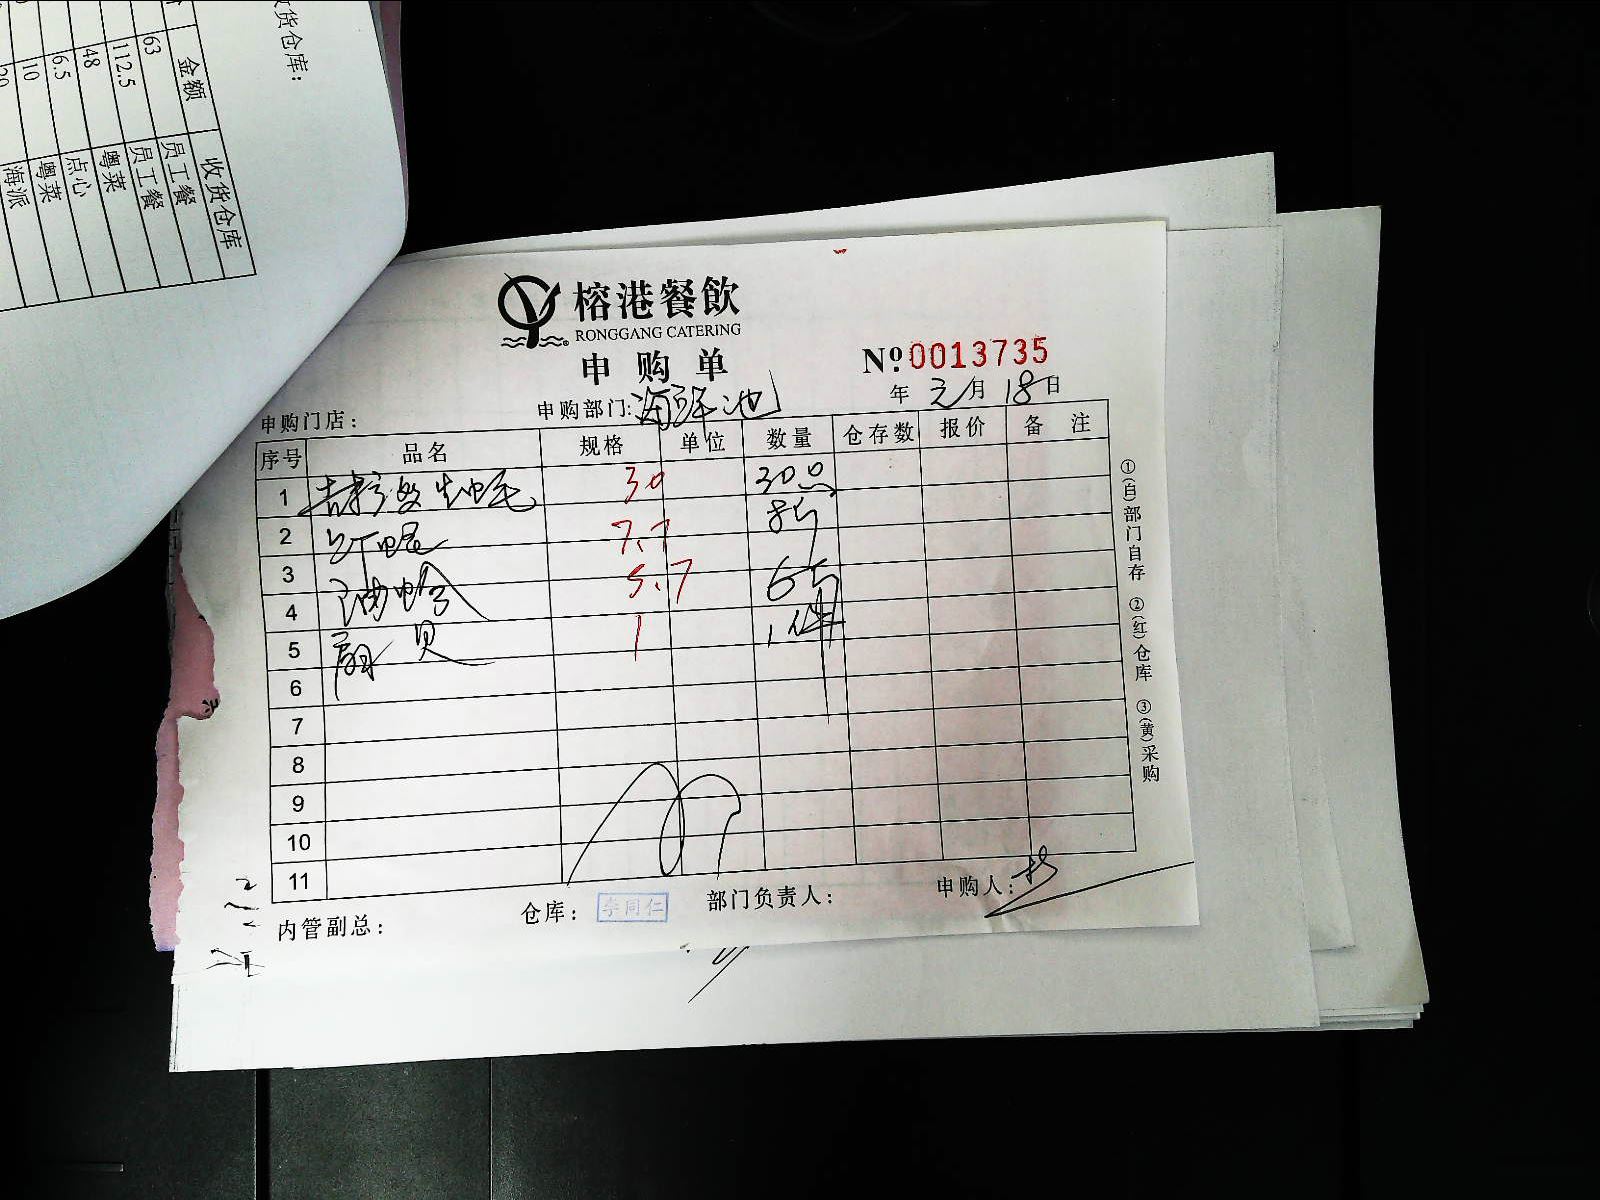 收货仓库：
金额 收货仓库
63 员工餐
112.5 员工餐
48 粤菜
6.5 点心
10 粤菜
20 海派
榕港餐飲
RONGGANG CATERING
申购单
№:0013735
年 元月 18日
申购门店：
申购部门:海鲜池
序号 品名 规格 单位 数量 仓存数 报价 备注
1 30 30只
2 红 7.7 8斤
3 油蛤 5.7 6斤
4 扇贝 1 1件
5
6
7
8
9
10
11
①(白)部门自存 ②(红)仓库 ③(黄)采购
内管副总：
仓库： 李同仁
部门负责人：
申购人：